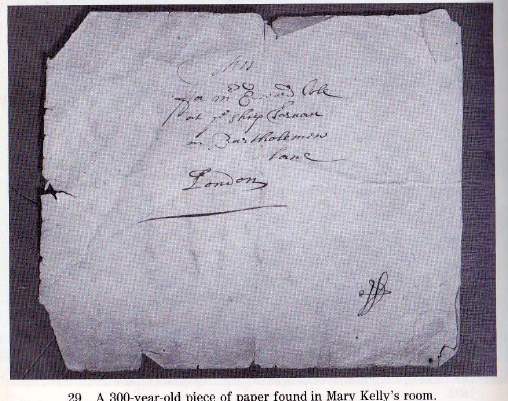 This
ffor mr Edward Cole
at ye ship
in Bartholemew
lane
London
29 A 300-year-old piece of paper found in Mary Kelly's room.